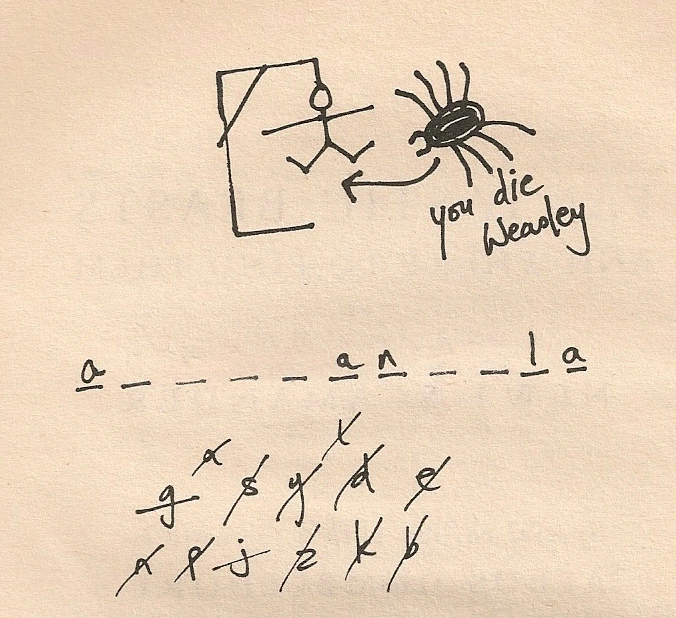 you die
Weasley
a _ _ _ _ a n _ _ l a
g s y d e
j z k b